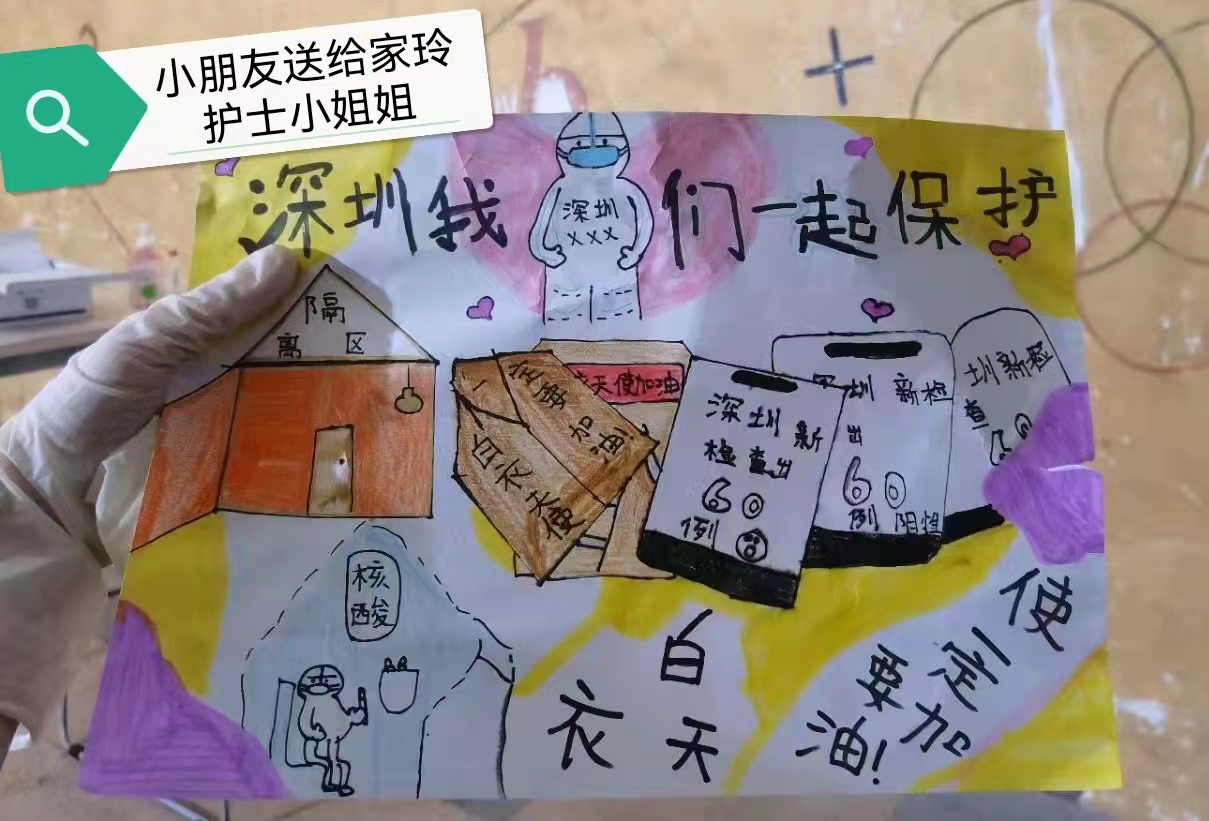 小朋友送给家玲
护士小姐姐
深圳我们一起保护
深圳
×××
隔
离 区
一定要加油!
白衣天使
天使加油
深圳新
检查出
60
例
圳 新检
出
60
例 阳性
圳新检
查
60
核
酸
白
衣 天
使
一定
要加
油!